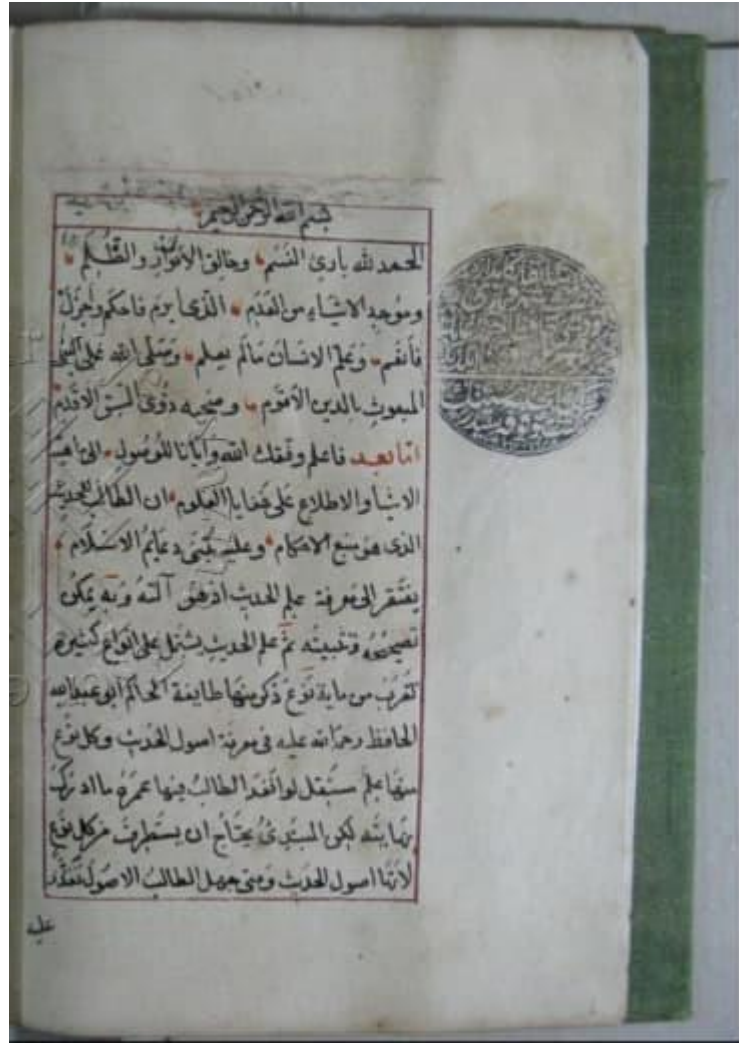 بسم الله الرحمن الرحيم
الحمد لله بارئ النسم وخالق الانوار والظلم
وموجد الاشياء من العدم الذى أبرم فاحكم وأجزل
فأنعم وعلم الانسان مالم يعلم وصلى الله على النبى
المبعوث بالدين الاقوم وصحبه ذوى السبق الاقدم
اما بعد فاعلم وفقك الله وايانا للوصول الى
الاشيا والاطلاع على العلوم ان الطالب للحديث
الذى هو منبع الاحكام وعليه تبنى دعايم الاسلام
يفتقر الى معرفة علم الحديث اذ هو آلته وبه يمكن
تصحيحه ثم علم الحديث يشتمل على انواع كثيرة
تقرب من ماية نوع ذكر منها طايفة الحاكم ابو عبد الله
الحافظ رحمة الله عليه فى معرفة اصول الحديث وكل نوع
منها علم مستقل لو انفد الطالب فيها عمره ما ادرك
نهايته لكن المبتدئ يحتاج ان يستطرف من كل نوع
لانها اصول الحديث ومتى جهل الطالب الاصول تعذر
عليه